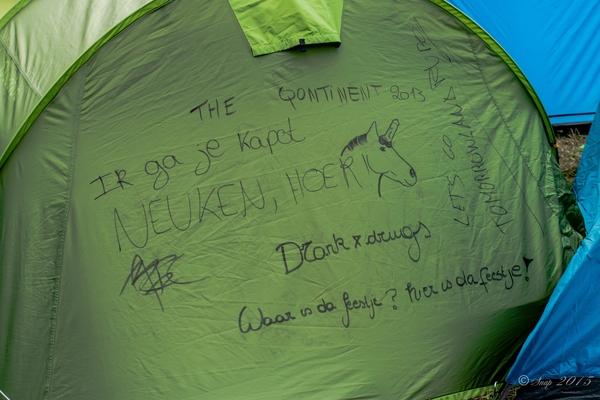 THE QONTINENT 2013
IK ga je kapot
NEUKEN, HOER!!
Drank & drugs
Waar is da feestje? hier is da feestje!
LET'S GO
TOMORROWLAND
© Snap 2015